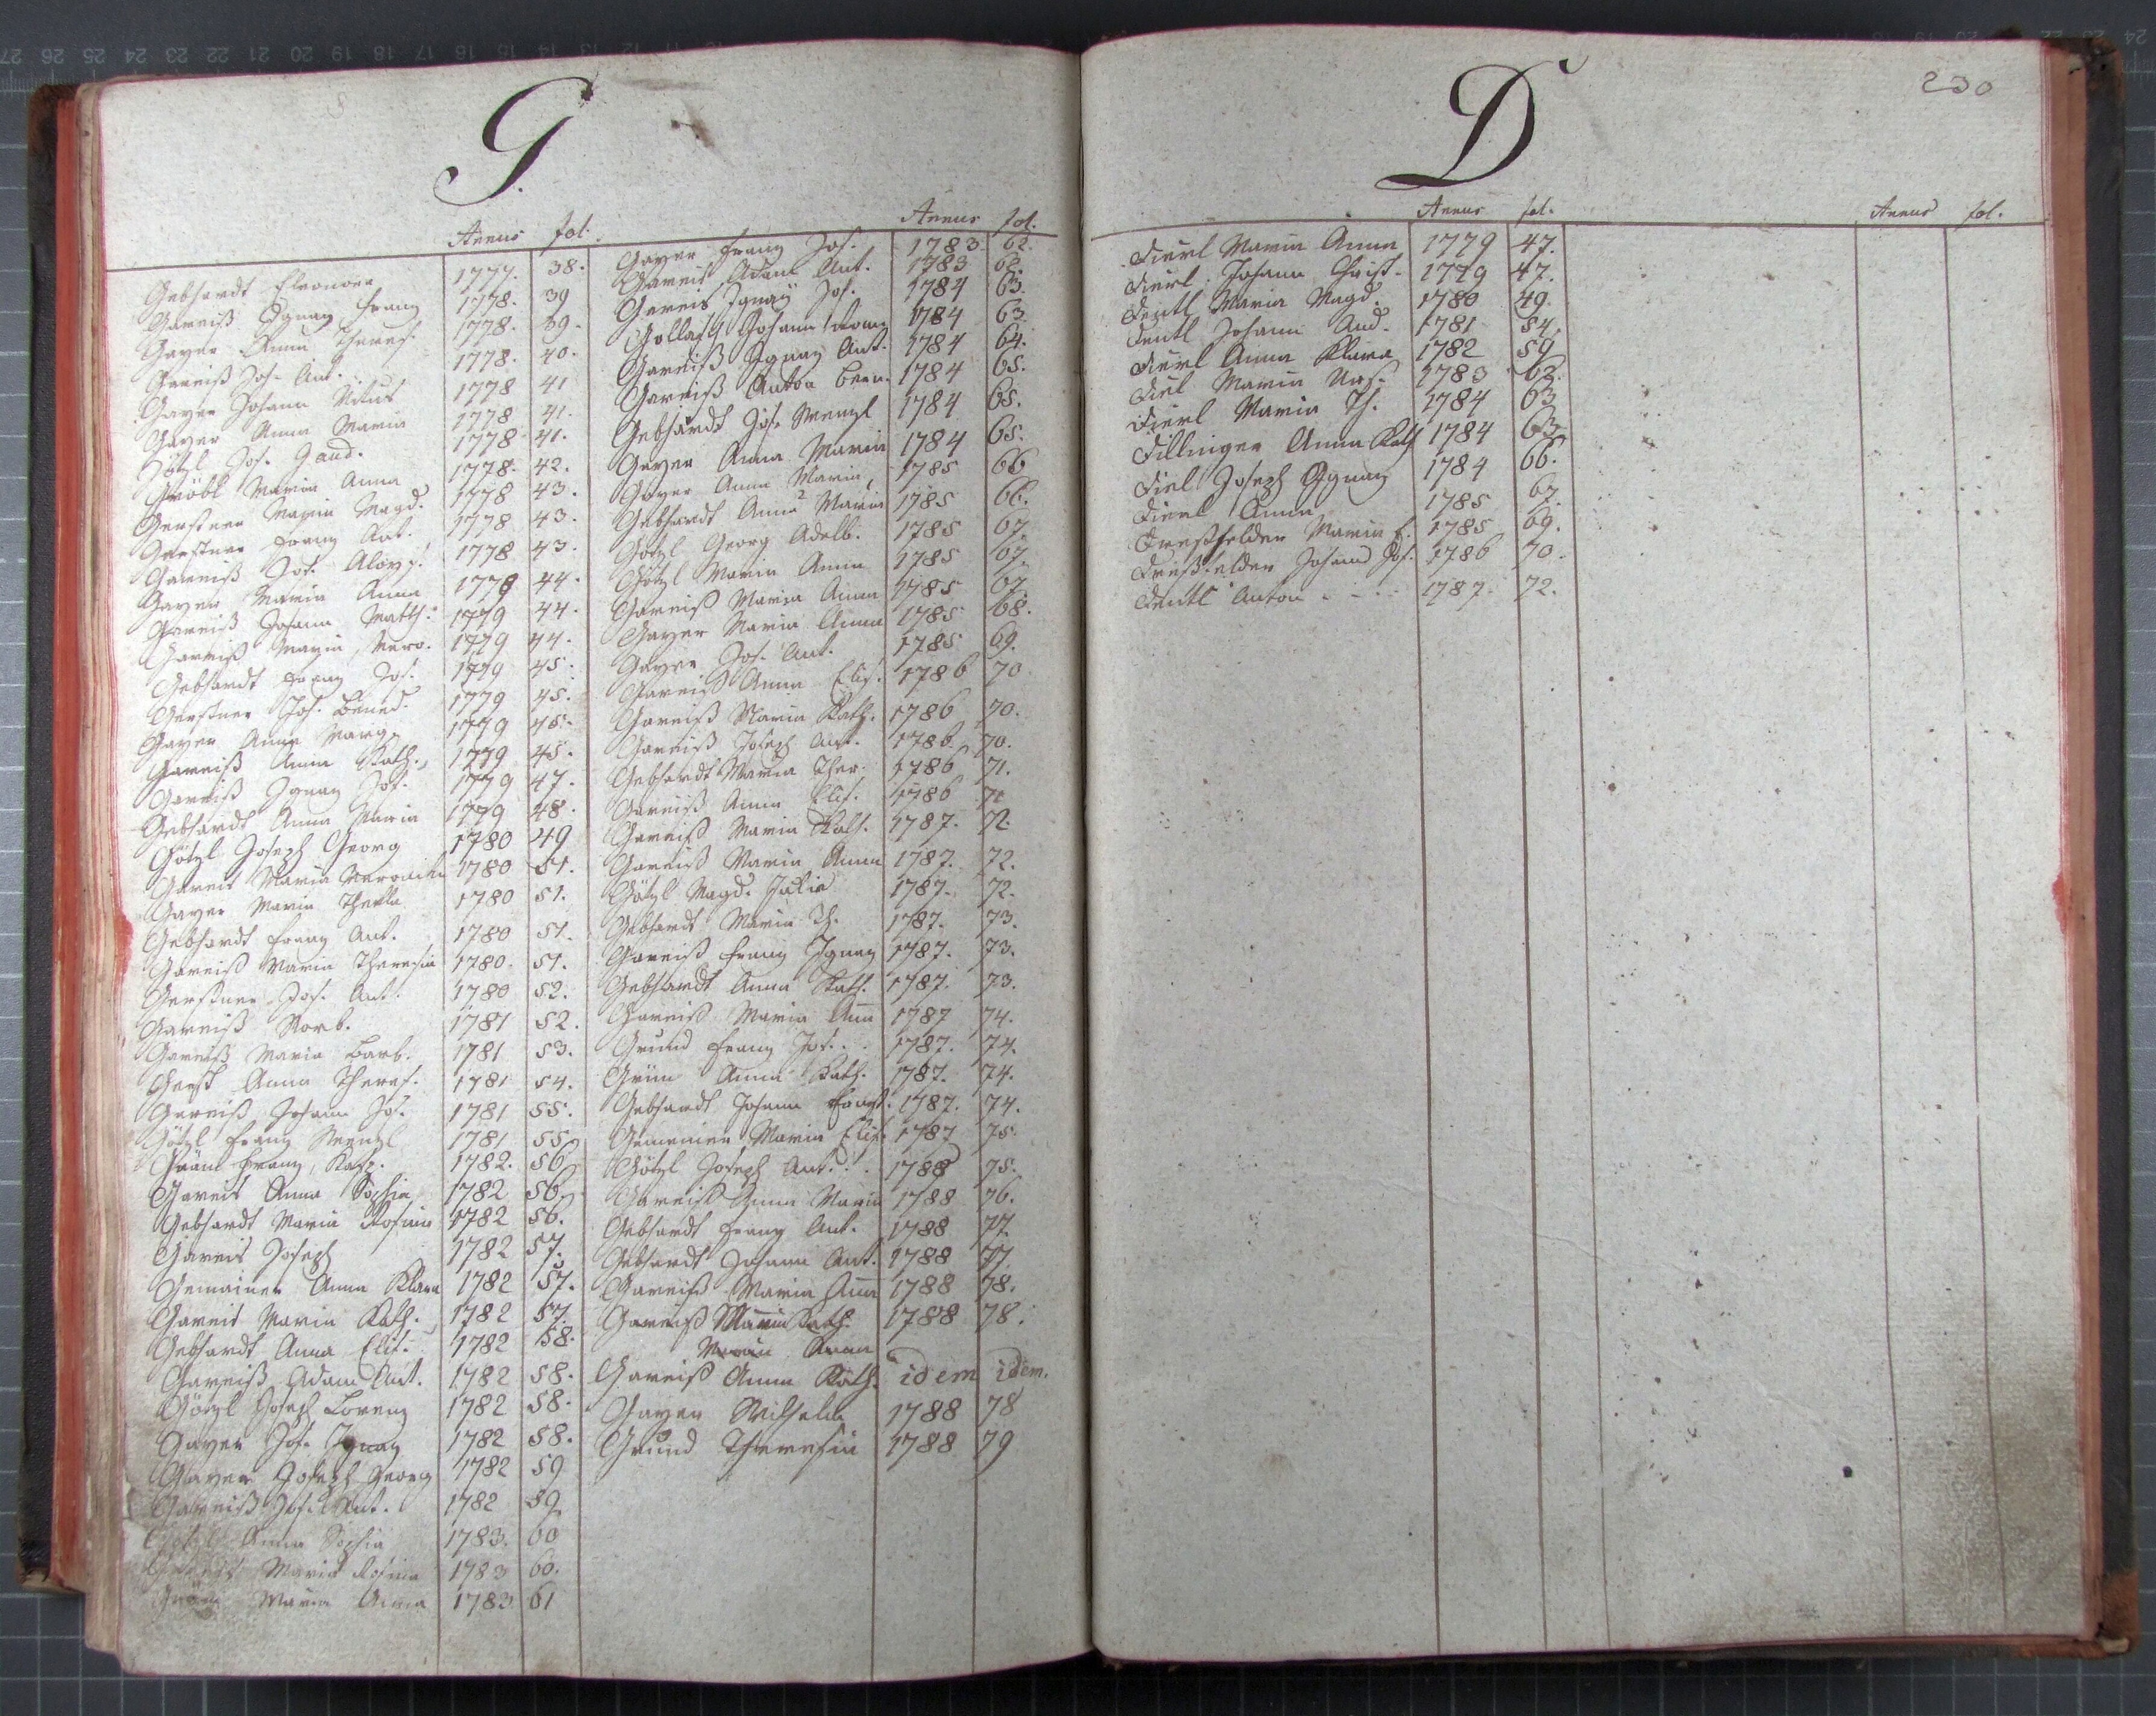 G.
Annus fol.
Gebhardt Eleonora 1777. 38.
Gareiß Ignaz Franz 1778. 39
Gayer Anna Theres. 1778. 39.
Gareiß Jos. Ant. 1778. 40.
Gayer Johann Vitus 1778 41
Gayer Anna Maria 1778 41.
Götzl Jos. Gaud. 1778. 41.
Maria Anna 1778. 42.
Gerstner Maria Magd. 1778 43.
Gerstner Franz Ant. 1778 43.
Gareiß Jos. Aloys. 1778 43
Gayer Maria Anna 1779 44.
Gareiß Johann Matth. 1779 44.
Gareiß Maria Vero. 1779 44.
Gebhardt Franz Jos. 1779 45.
Gerstner Jos. Bened. 1779 45.
Gayer Anna Marg. 1779 45.
Gareiß Anna Kath. 1779 45.
Gareiß Ignaz Jos. 1779 47.
Gebhardt Anna Maria 1779 48.
Götzl Joseph Georg 1780 49
Gareis Maria Veronika 1780 51.
Gayer Maria Thekla 1780 51.
Gebhardt Franz Ant. 1780 51.
Gareiß Maria Theresia 1780. 51.
Gerstner Jos. Ant. 1780 52.
Gareiß Norb. 1781 52.
Gareiß Maria Barb. 1781 53.
Anna Theres. 1781 54.
Gareiß Johann Jos. 1781 55.
Götzl Franz Wenzl 1781 55
Franz Kasp. 1782. 56
Gareis Anna Sophia 1782 56.
Gebhardt Maria Rosina 1782 56.
Gareis Joseph 1782 57.
Gemainer Anna Klara 1782 57.
Gareis Maria Kath. 1782 57.
Gebhardt Anna Elis. 1782 58.
Gareiß Adam Ant. 1782 58.
Götzl Joseph Lorenz 1782 58.
Gayer Jos. Ignaz 1782 58.
Gayer Joseph Georg 1782 59
Gareiß Jos. Ant. 1782 59
Götzl Anna Sophia 1783. 60
Maria Rosina 1783 60.
Maria Anna 1783 61
Annus fol.
Gayer Franz Jos. 1783. 62.
Gareis Adam Ant. 1783 62.
Gareis Ignaz Jos. 1784 63.
Johann 1784 63
Gareiß Ignaz Ant. 1784 64.
Gareiß Anton Bern. 1784 65.
Gebhardt Jos. Wenzl 1784 65.
Gayer Anna Maria 1784 65.
Gayer Anna Maria 1785 66
Gebhardt Anna Maria 1785 66.
Götzl Georg Adelb. 1785 67.
Götzl Maria Anna 1785 67.
Gareiß Maria Anna 1785 67
Gayer Maria Anna 1785 68.
Gayer Jos. Ant. 1785 69.
Gareiß Anna Elis. 1786 70
Gareiß Maria Kath. 1786 70.
Gareiß Joseph Ant. 1786 70.
Gebhardt Maria Ther. 1786 71.
Gareiß Anna Elis. 1786 71
Gareiß Maria Kath. 1787. 72.
Gareiß Maria Anna 1787. 72.
Götzl Magd. Julia 1787. 72.
Gebhardt Maria Th. 1787. 73.
Gareiß Franz Ignaz 1787. 73.
Gebhardt Anna Kath. 1787. 73.
Gareiß Maria Ann 1787 74.
Grund Franz Jos. 1787. 74.
Grün Anna Kath. 1787. 74.
Gebhardt Johann 1787. 74.
Gemeiner Maria Elis. 1787 75.
Götzl Joseph Ant. 1788 75.
Gareiß Anna Maria 1788 76.
Gebhardt Franz Ant. 1788 77.
Gebhardt Johann Ant. 1788 77.
Gareiß Maria Anna 1788 78.
Gareiß Maria Kath. 1788 78.
Maria Anna
Gareiß Anna Kath. idem idem.
Gayer 1788 78
Grund Theresia 1788 79
230
D
Annus fol.
Annus fol.
Dierl Maria Anna 1779 47.
Dierl Johann Christ. 1779 47.
Dentl Maria Magd. 1780 49.
Dentl Johann And. 1781 54.
Dierl Anna Klara 1782 59
Diel Maria Urs. 1783 62.
Dierl Maria Th. 1784 63
Dillinger Anna Kath 1784 63.
Diel Joseph Ignaz 1784 66.
Dierl Anna 1785 67.
Dreßfelder Maria E. 1785 69.
Dreßfelder Johann Jos. 1786 70.
Dentl Anton 1787. 72.